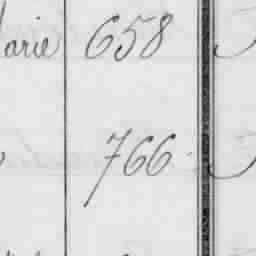 arie 658
766